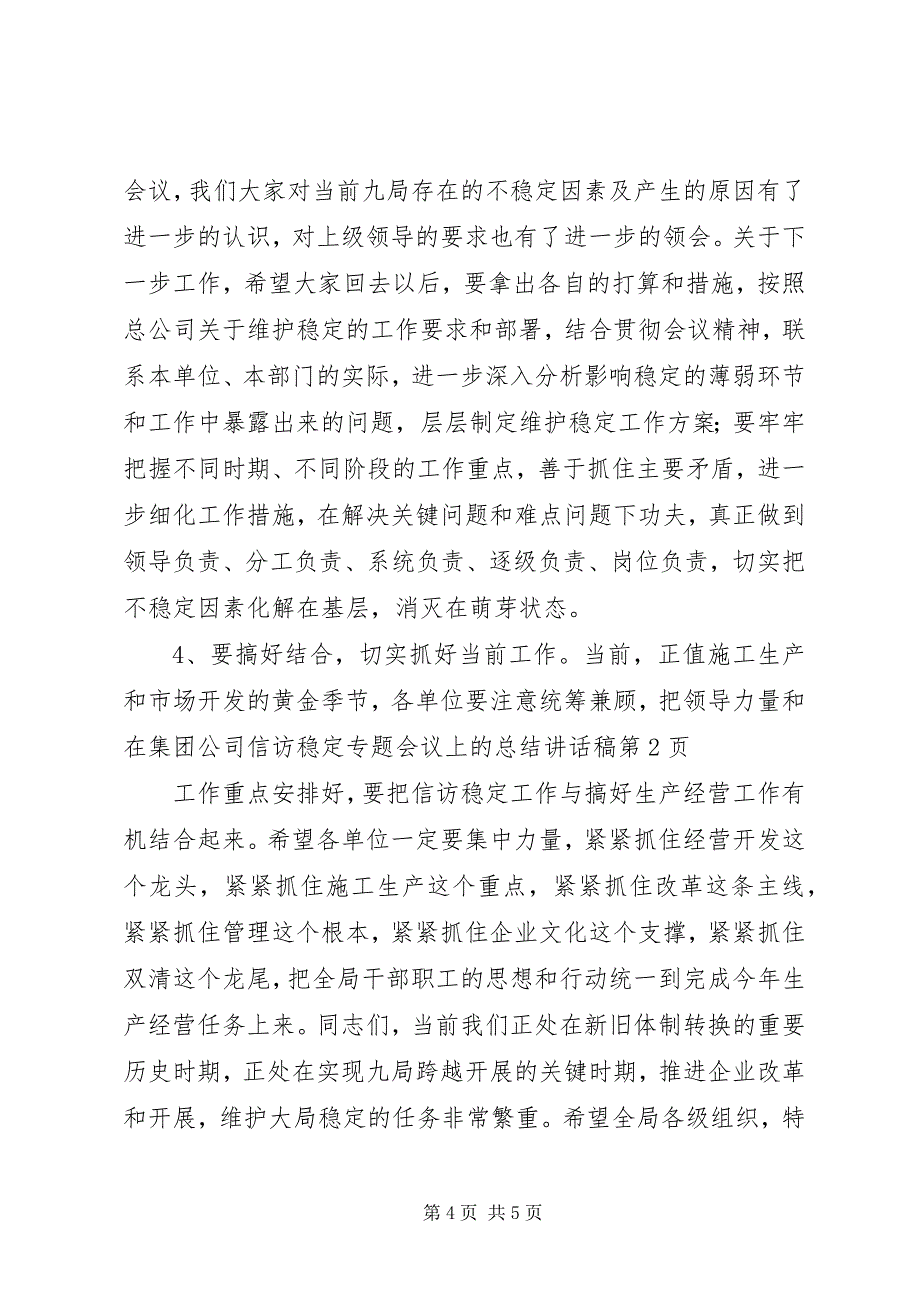 会议，我们大家对当前九局存在的不稳定因素及产生的原因有了
进一步的认识，对上级领导的要求也有了进一步的领会。关于下
一步工作，希望大家回去以后，要拿出各自的打算和措施，按照
总公司关于维护稳定的工作要求和部署，结合贯彻会议精神，联
系本单位、本部门的实际，进一步深入分析影响稳定的薄弱环节
和工作中暴露出来的问题，层层制定维护稳定工作方案；要牢牢
把握不同时期、不同阶段的工作重点，善于抓住主要矛盾，进一
步细化工作措施，在解决关键问题和难点问题下功夫，真正做到
领导负责、分工负责、系统负责、逐级负责、岗位负责，切实把
不稳定因素化解在基层，消灭在萌芽状态。
4、要搞好结合，切实抓好当前工作。当前，正值施工生产
和市场开发的黄金季节，各单位要注意统筹兼顾，把领导力量和
在集团公司信访稳定专题会议上的总结讲话稿第 2 页
工作重点安排好，要把信访稳定工作与搞好生产经营工作有
机结合起来。希望各单位一定要集中力量，紧紧抓住经营开发这
个龙头，紧紧抓住施工生产这个重点，紧紧抓住改革这条主线，
紧紧抓住管理这个根本，紧紧抓住企业文化这个支撑，紧紧抓住
双清这个龙尾，把全局干部职工的思想和行动统一到完成今年生
产经营任务上来。同志们，当前我们正处在新旧体制转换的重要
历史时期，正处在实现九局跨越开展的关键时期，推进企业改革
和开展，维护大局稳定的任务非常繁重。希望全局各级组织，特
第 4 页 共 5 页